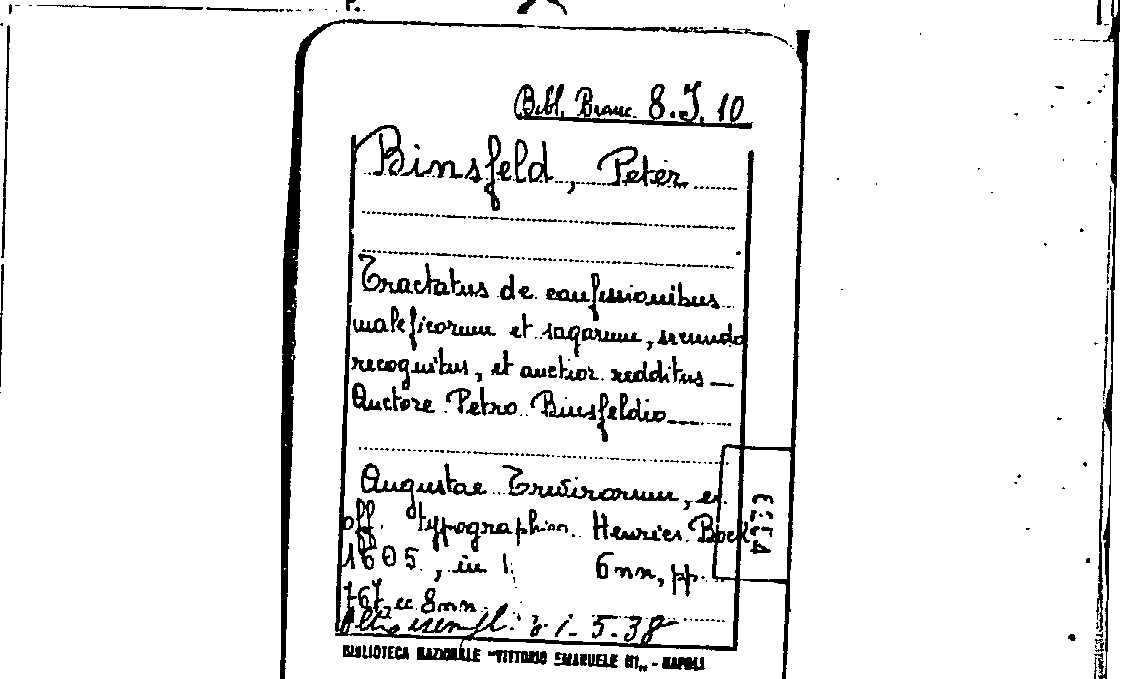 Bibl. Branc. 8. J. 10
Binsfeld, Peter
Tractatus de confessionibus
maleficorum et sagarum, secundo
recognitus, et auctior redditus
Auctore Petro Binsfeldio
Augustae Trevirorum, ex
off. typographica Henrici Bock
1605, in 6nn, pp.
767, cc 8nn.
Altro esempl.: 5.38
BIBLIOTECA NAZIONALE "VITTORIO EMANUELE III" - NAPOLI